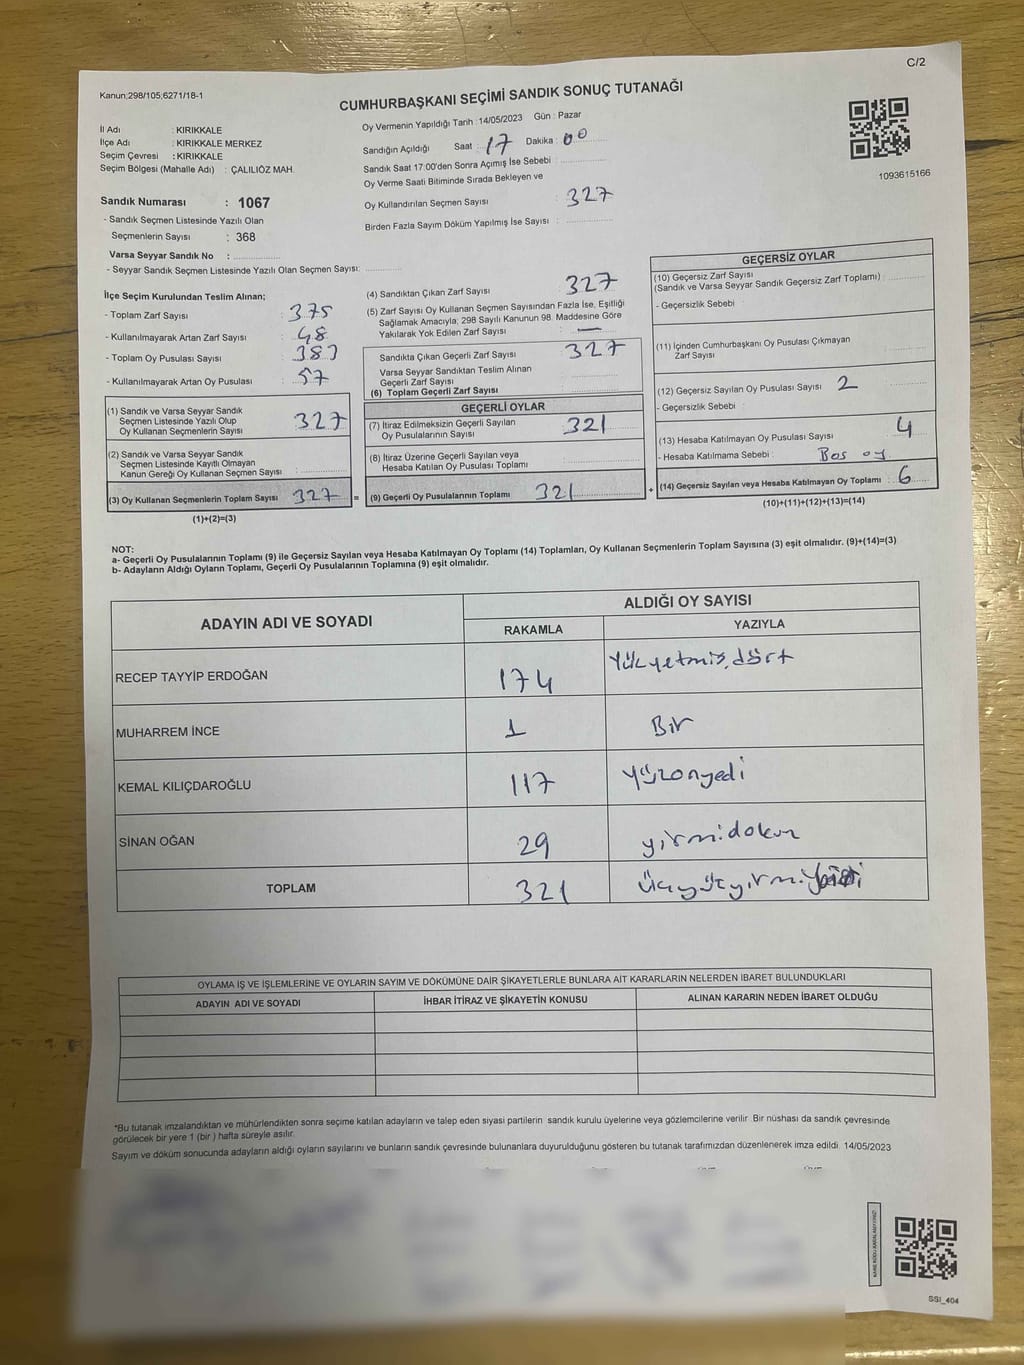 C/2
Kanun;298/105;6271/18-1
CUMHURBAŞKANI SEÇİMİ SANDIK SONUÇ TUTANAĞI
1093615166
İl Adı : KIRIKKALE
İlçe Adı : KIRIKKALE MERKEZ
Seçim Çevresi : KIRIKKALE
Seçim Bölgesi (Mahalle Adı) : ÇALILIÖZ MAH.
Sandık Numarası : 1067
- Sandık Seçmen Listesinde Yazılı Olan
Seçmenlerin Sayısı : 368
Varsa Seyyar Sandık No :
- Seyyar Sandık Seçmen Listesinde Yazılı Olan Seçmen Sayısı:
Oy Vermenin Yapıldığı Tarih : 14/05/2023 Gün : Pazar
Sandığın Açıldığı Saat : 17 Dakika : 00
Sandık Saat 17:00'den Sonra Açımış İse Sebebi :
Oy Verme Saati Bitiminde Sırada Bekleyen ve
Oy Kullandırılan Seçmen Sayısı : 327
Birden Fazla Sayım Döküm Yapılmış İse Sayısı :
İlçe Seçim Kurulundan Teslim Alınan;
- Toplam Zarf Sayısı : 375
- Kullanılmayarak Artan Zarf Sayısı : 48
- Toplam Oy Pusulası Sayısı :
- Kullanılmayarak Artan Oy Pusulası : 57
(1) Sandık ve Varsa Seyyar Sandık
Seçmen Listesinde Yazılı Olup
Oy Kullanan Seçmenlerin Sayısı : 327
(2) Sandık ve Varsa Seyyar Sandık
Seçmen Listesinde Kayıtlı Olmayan
Kanun Gereği Oy Kullanan Seçmen Sayısı :
(3) Oy Kullanan Seçmenlerin Toplam Sayısı : 327 =
(1)+(2)=(3)
(4) Sandıktan Çıkan Zarf Sayısı : 327
(5) Zarf Sayısı Oy Kullanan Seçmen Sayısından Fazla İse, Eşitliği
Sağlamak Amacıyla; 298 Sayılı Kanunun 98. Maddesine Göre
Yakılarak Yok Edilen Zarf Sayısı : —
Sandıkta Çıkan Geçerli Zarf Sayısı : 327
Varsa Seyyar Sandıktan Teslim Alınan
Geçerli Zarf Sayısı :
(6) Toplam Geçerli Zarf Sayısı :
GEÇERLİ OYLAR
(7) İtiraz Edilmeksizin Geçerli Sayılan
Oy Pusulalarının Sayısı : 321
(8) İtiraz Üzerine Geçerli Sayılan veya
Hesaba Katılan Oy Pusulası Toplamı :
(9) Geçerli Oy Pusulalarının Toplamı : 321 +
GEÇERSİZ OYLAR
(10) Geçersiz Zarf Sayısı
(Sandık ve Varsa Seyyar Sandık Geçersiz Zarf Toplamı) :
- Geçersizlik Sebebi :
(11) İçinden Cumhurbaşkanı Oy Pusulası Çıkmayan
Zarf Sayısı :
(12) Geçersiz Sayılan Oy Pusulası Sayısı : 2
- Geçersizlik Sebebi :
(13) Hesaba Katılmayan Oy Pusulası Sayısı : 4
- Hesaba Katılmama Sebebi : Bos oy
(14) Geçersiz Sayılan veya Hesaba Katılmayan Oy Toplamı : 6
(10)+(11)+(12)+(13)=(14)
NOT:
a- Geçerli Oy Pusulalarının Toplamı (9) ile Geçersiz Sayılan veya Hesaba Katılmayan Oy Toplamı (14) Toplamları, Oy Kullanan Seçmenlerin Toplam Sayısına (3) eşit olmalıdır. (9)+(14)=(3)
b- Adayların Aldığı Oyların Toplamı, Geçerli Oy Pusulalarının Toplamına (9) eşit olmalıdır.
ADAYIN ADI VE SOYADI
ALDIĞI OY SAYISI
RAKAMLA YAZIYLA
RECEP TAYYİP ERDOĞAN 174 yetmiş dört
MUHARREM İNCE 1 Bir
KEMAL KILIÇDAROĞLU 117 yüzonyedi
SİNAN OĞAN 29
TOPLAM 321
OYLAMA İŞ VE İŞLEMLERİNE VE OYLARIN SAYIM VE DÖKÜMÜNE DAİR ŞİKAYETLERLE BUNLARA AİT KARARLARIN NELERDEN İBARET BULUNDUKLARI
ADAYIN ADI VE SOYADI İHBAR İTİRAZ VE ŞİKAYETİN KONUSU ALINAN KARARIN NEDEN İBARET OLDUĞU
*Bu tutanak imzalandıktan ve mühürlendikten sonra seçime katılan adayların ve talep eden siyasi partilerin sandık kurulu üyelerine veya gözlemcilerine verilir. Bir nüshası da sandık çevresinde
görülecek bir yere 1 (bir ) hafta süreyle asılır.
Sayım ve döküm sonucunda adayların aldığı oyların sayılarını ve bunların sandık çevresinde bulunanlara duyurulduğunu gösteren bu tutanak tarafımızdan düzenlenerek imza edildi. 14/05/2023
SSI_404